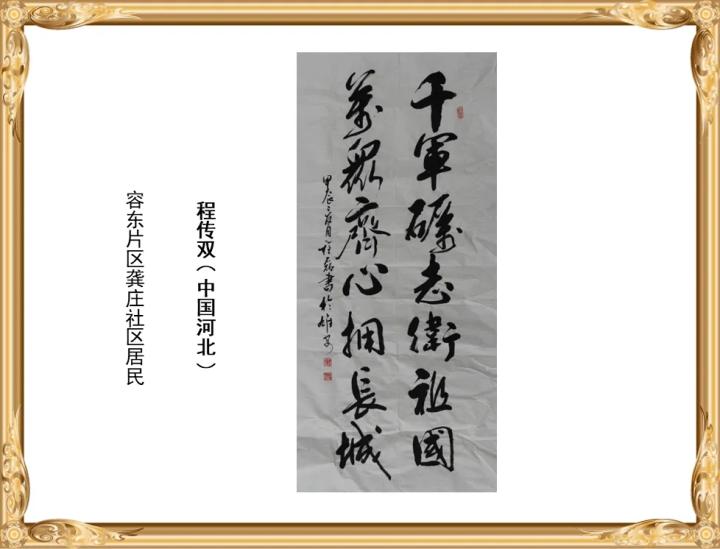 千軍礪志衛祖國
萬眾齊心擁長城
程传双（中国河北）
容东片区龚庄社区居民